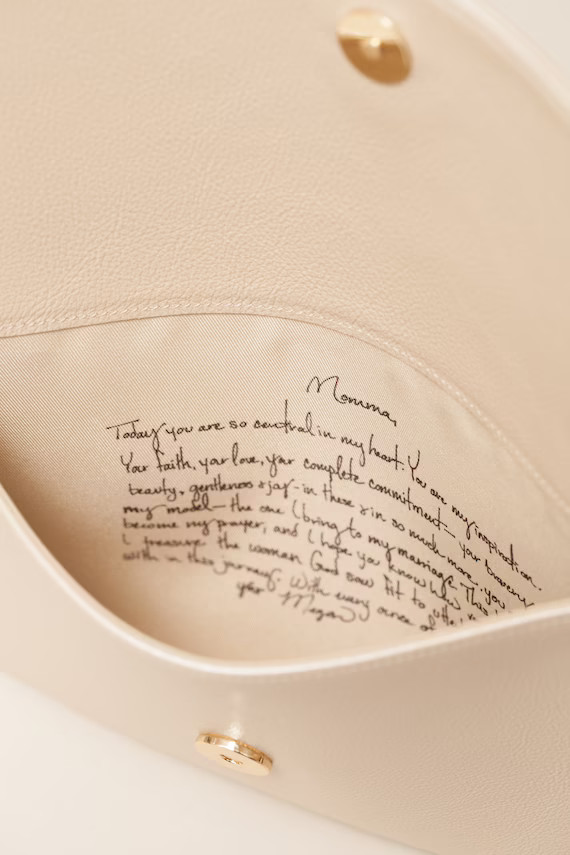 Momma,
Today you are so central in my heart. You are my inspiration.
Your faith, your love, your complete commitment— your bravery
beauty, gentleness & joy— in these & in so much more. you
my model— the one I bring to my marriage. This
become my prayer, and I hope you know how
I treasure the woman God saw fit to
with in this journey. With every ounce of
your Megan